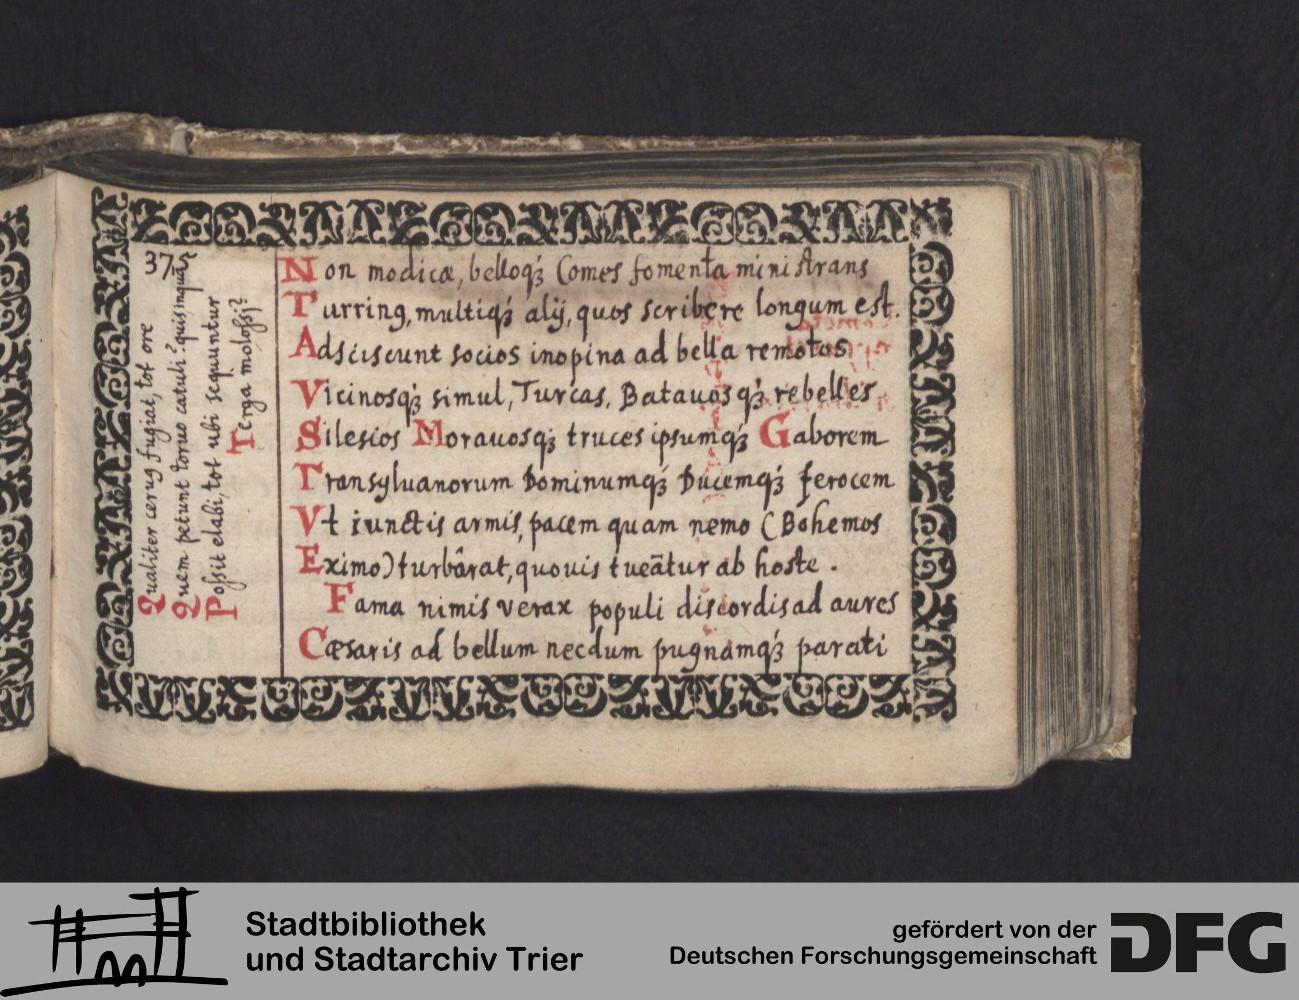 37.
Qualiter ceruq fugiat, tot ore
Quem petunt toruo catuli? quis inquā
Possit elabi, tot ubi sequuntur
Terga molossi?
Non modicæ, belloq́; Comes fomenta ministrans
Turring, multiq́; alij, quos scribere longum est.
Adsciscunt socios inopina ad bella remotos
Vicinosq́; simul, Turcas, Batauosq́; rebelles
Silesios Morauosq́; truces ipsumq́; Gaborem
Transyluanorum Dominumq́; Ducemq́; ferocem
Vt iunctis armis, pacem quam nemo (Bohemos
Eximo) turbârat, quouis tueātur ab hoste.
Fama nimis verax populi discordis ad aures
Cæsaris ad bellum necdum pugnamq́; parati
Stadtbibliothek
und Stadtarchiv Trier
gefördert von der
Deutschen Forschungsgemeinschaft
DFG